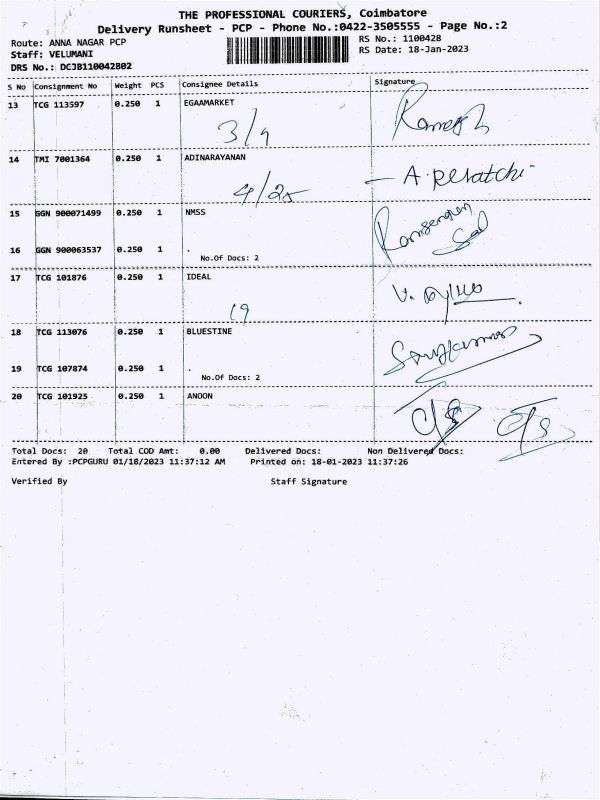 THE PROFESSIONAL COURIERS, Coimbatore
Delivery Runsheet - PCP - Phone No.:0422-3505555 - Page No.:2
Route: ANNA NAGAR PCP
RS No.: 1100428
Staff: VELUMANI
RS Date: 18-Jan-2023
DRS No.: DCJB110042802
S No Consignment No Weight PCS Consignee Details Signature
13 TCG 113597 0.250 1 EGAAMARKET
3/4
14 TMI 7001364 0.250 1 ADINARAYANAN
4/25
15 GGN 900071499 0.250 1 NMSS
16 GGN 900063537 0.250 1 .
No.Of Docs: 2
17 TCG 101876 0.250 1 IDEAL
19
18 TCG 113076 0.250 1 BLUESTINE
19 TCG 107874 0.250 1 .
No.Of Docs: 2
20 TCG 101925 0.250 1 ANOON
Total Docs: 20 Total COD Amt: 0.00 Delivered Docs: Non Delivered Docs:
Entered By :PCPGURU 01/18/2023 11:37:12 AM Printed on: 18-01-2023 11:37:26
Verified By Staff Signature